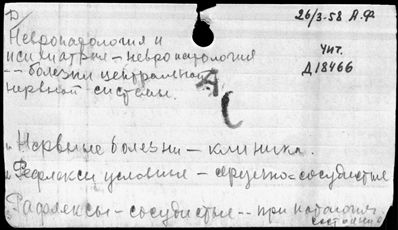 26/3-58 А.Ф
Невропатология и
психиатрия - невропатология
-- болезни центральной
нервной системы.
Чит.
Д18466
А
С
Нервные болезни - клиника.
Рефлексы условные - сердечно-сосудистые
Рефлексы - сосудистые -- при патологич
состояния